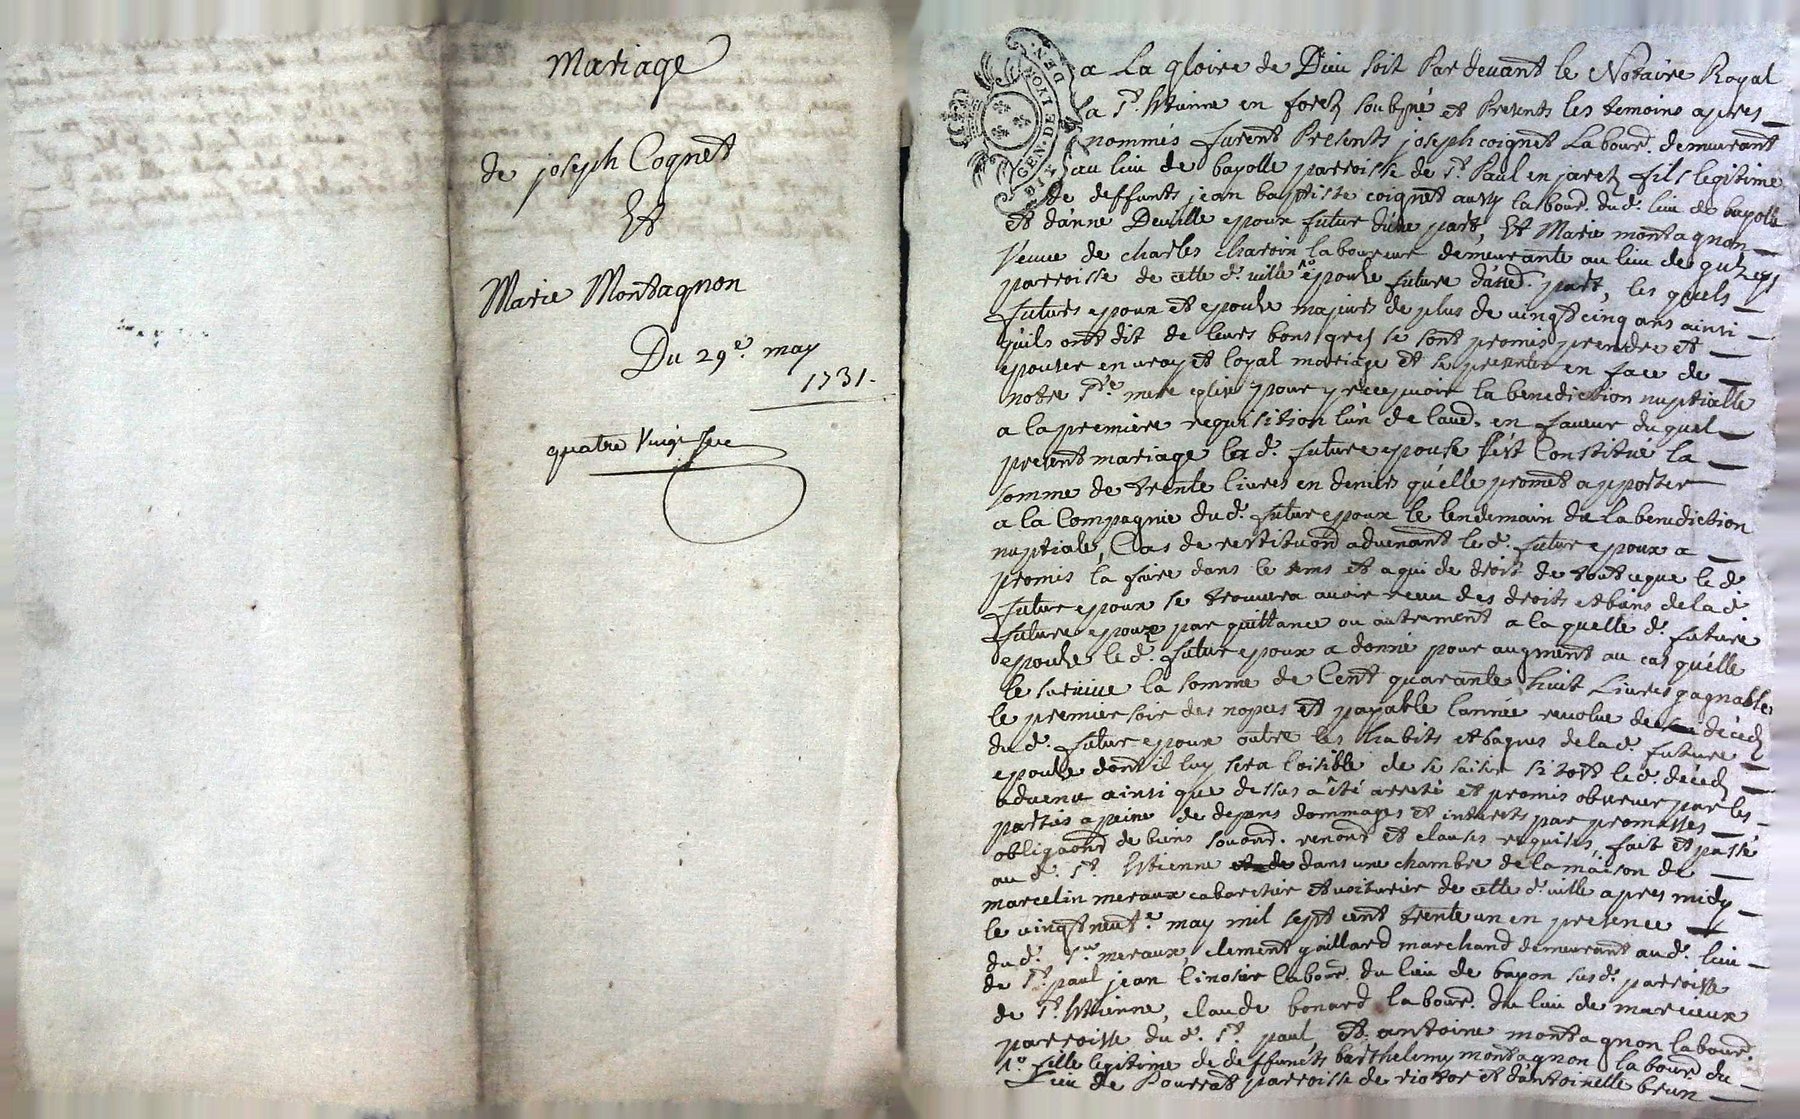 Mariage
de joseph Cognet
Et
Marie Montagnon
Du 29e. may
1731.
quatre Vingt
GEN. DE LYON
a La gloire de Dieu soit Pardevant le Notaire Royal
a St. Etienne en forez soubzné et Presents les temoins apres
nommés furent Presents joseph coignet Labour. demeurant
au lieu de bayolle parroisse de St. Paul en jarez fils legitime
de deffunts jean baptiste coignet aussy labour. dud. lieu de bayolle
et d'anne Deville epoux futur d'une part, Et Marie montagnon
veuve de charles charoin laboureur demeurante au lieu de
parroisse de cette d. ville epouse future d'autre part, les quels
futurs epoux et epouse majeurs de plus de vingt cinq ans ainsi
qu'ils ont dit de leurs bons grez se sont promis prendre et
epouser en vray et loyal mariage et se presenter en face de
notre Ste. mere eglise pour y recepvoir la benediction nuptialle
a la premiere requisition l'un de l'aud. en faveur du quel
present mariage lad. future epouse s'est Constitué la
somme de trente livres en deniers qu'elle promet apporter
a la Compagnie dud. futur epoux le lendemain de la benediction
nuptiale, Cas de restitution advenant led. futur epoux a
promis la faire dans le tems et a qui de droit de tout ce que led.
futur epoux se trouvera avoir receu des droits et biens de la d.
future epouze par quittance ou autrement a la quelle d. future
epouse le d. futur epoux a donné pour augment au cas qu'elle
le survive la somme de Cent quarante huit Livres gagnable
le premier soir des nopces et payable l'année revolue de décedz
dud. futur epoux outre les habits et bagues de la d. future
epouse dont il luy sera loisible de se saisir si tost led. décedz
advenu ainsi que dessus a été arresté et promis observer par les
parties a peine de depens dommages et interets par promesses
obligaons de biens soumons. renons et clauses requises, fait et passé
au d. St. Etienne dans une chambre de la maison de
marcelin meraux cabaretier et voiturier de cette d. ville apres midy
le vingt neufe. may mil sept cent trente un en presence
dud. Sr. meraux, clement gaillard marchand demeurant aud. lieu
de St. paul jean linosier labour. du lieu de bayon susd. parroisse
de St. Etienne, claude bonard labour. du lieu de marcieux
parroisse du d. St. paul, et antoine montagnon labour.
1o. fille legitime de deffuncts barthelemy montagnon labour. du
lieu de Pourrat parroisse de riotor et d'antoinette brun